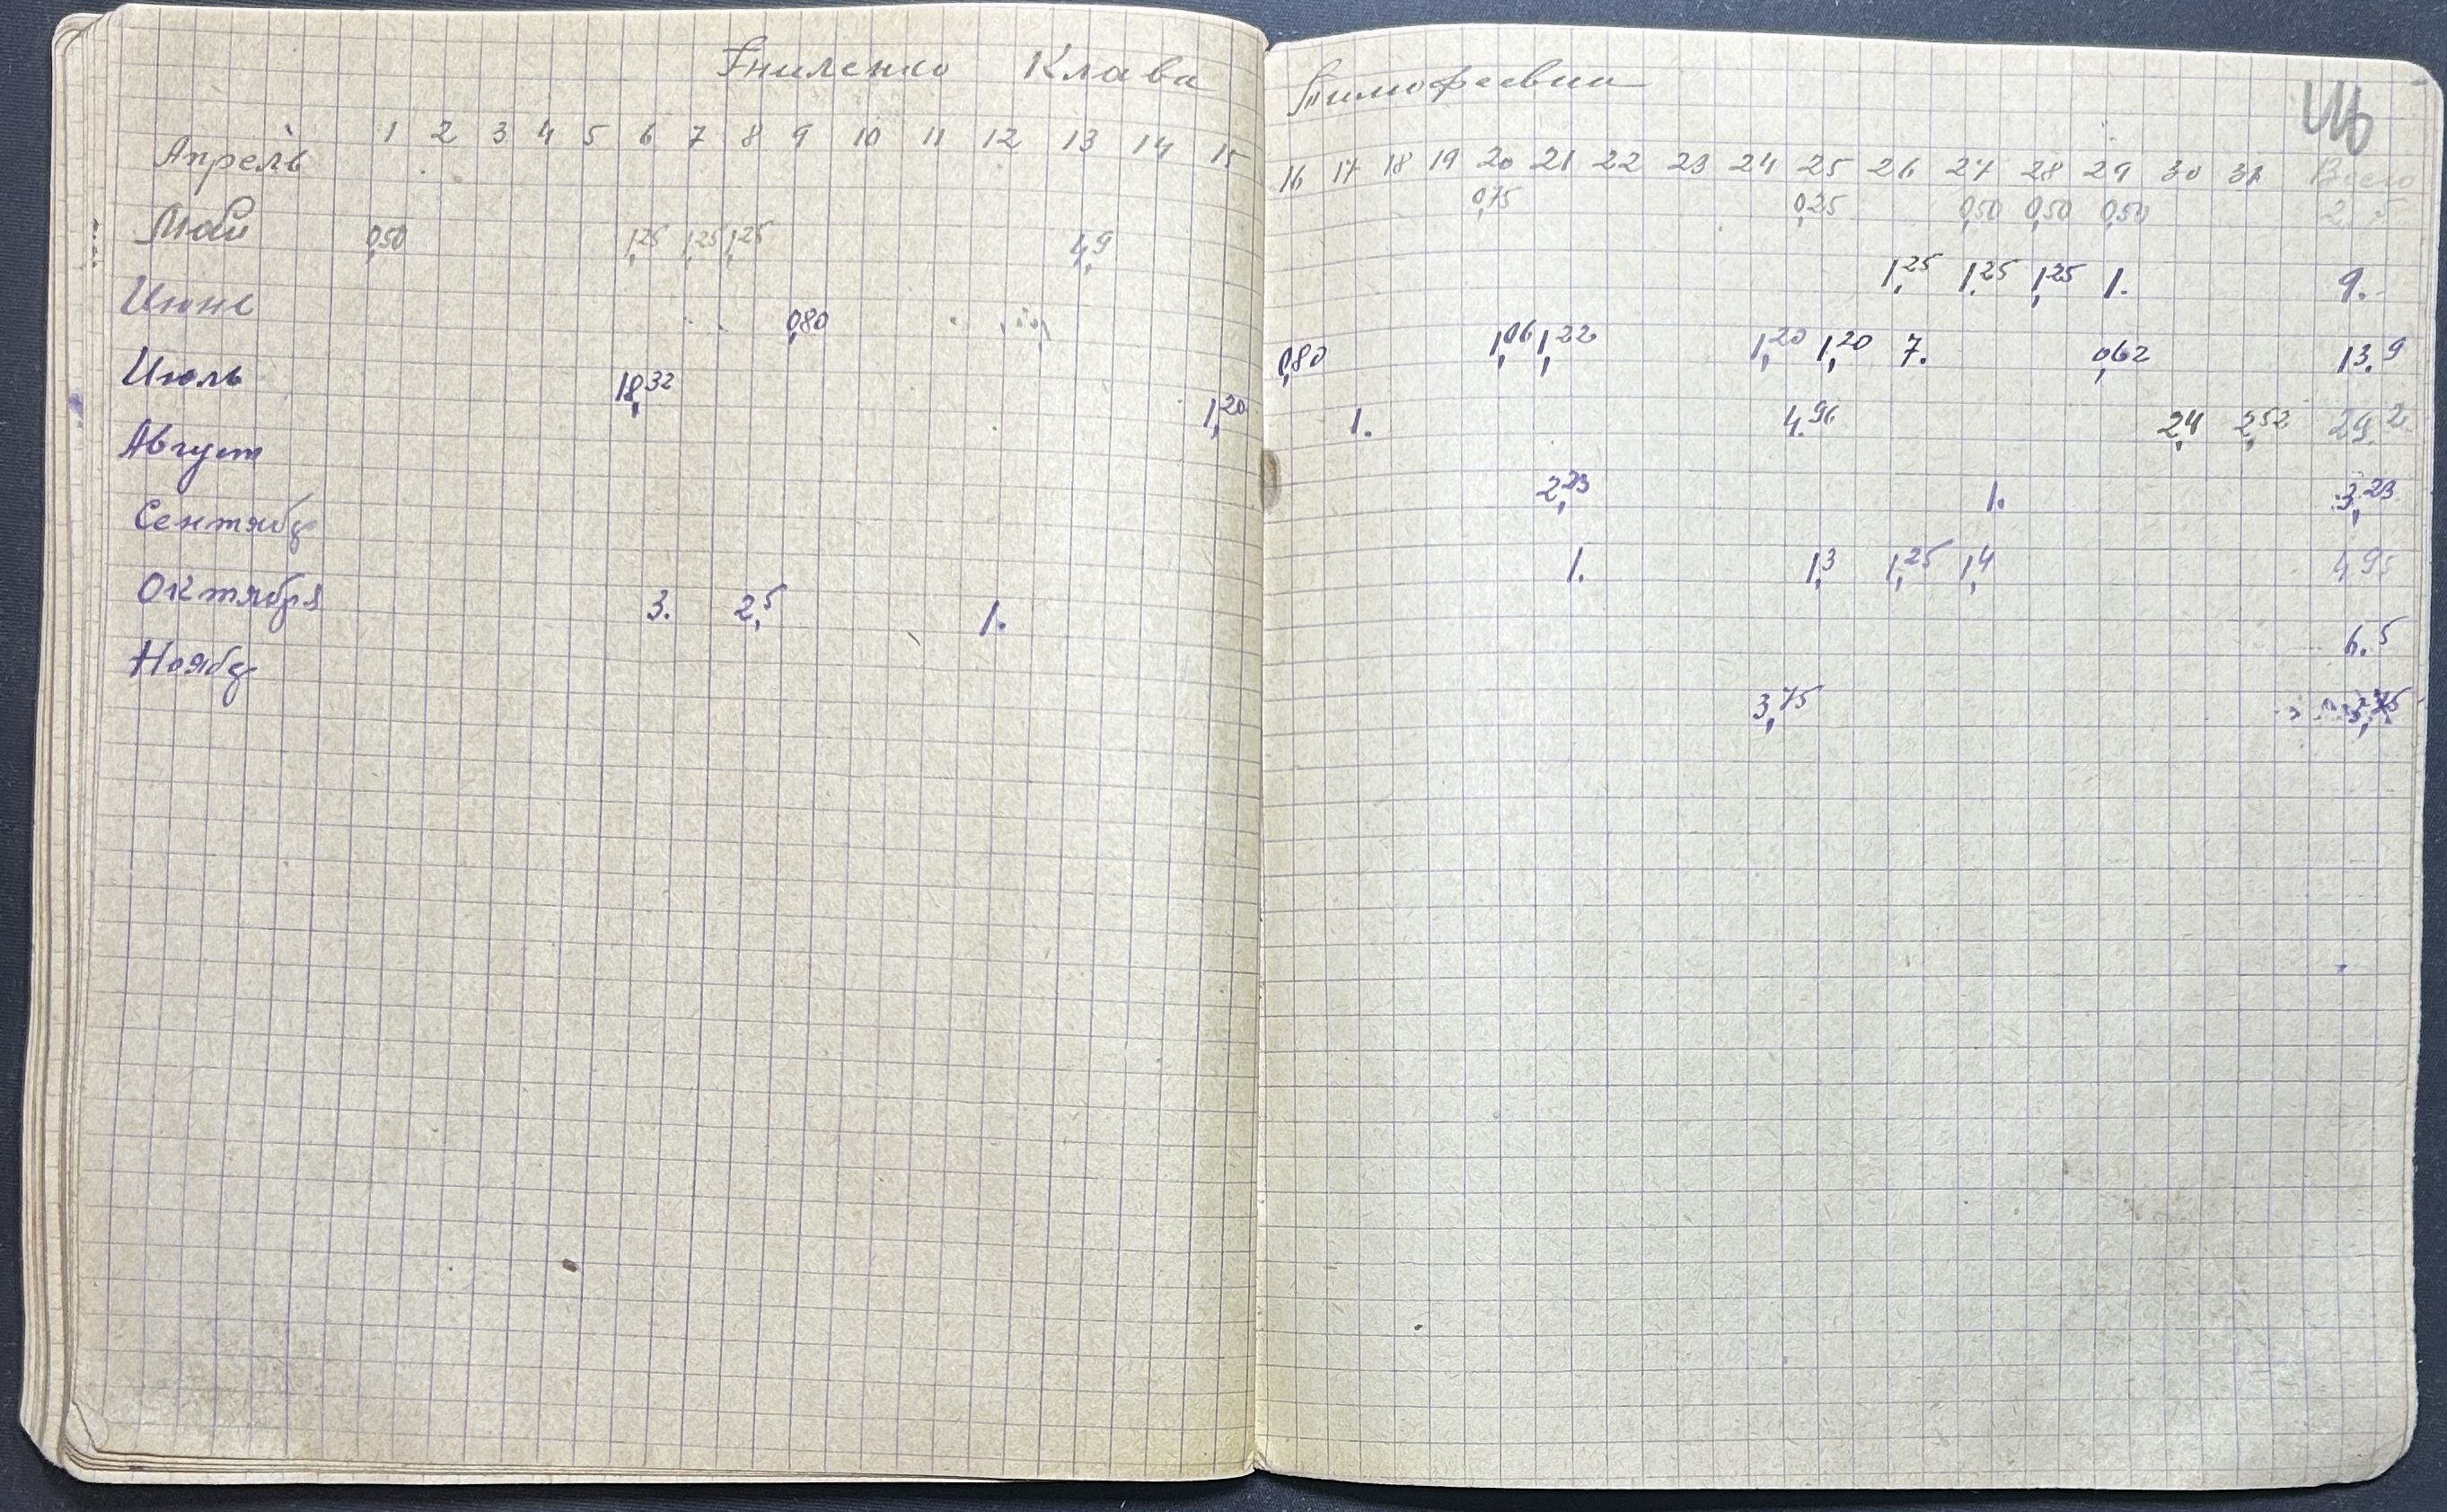 Гниленко Клава Тимофеевна
Апрель 1 2 3 4 5 6 7 8 9 10 11 12 13 14 15 16 17 18 19 20 21 22 23 24 25 26 27 28 29 30 31 Всего
0,75 0,25 0,50 0,50 0,50 2.5
Май 0,50 1,25 1,25 1,25 4,9 1,25 1,25 1,25 1. 9.
Июнь 0,80 0,80 1,06 1,22 1,20 1,20 7. 0,62 13.9
Июль 18,32 1,20 1. 4.96 2,4 2,52 29.2
Август 2,23 1. 3,23
Сентябр 1. 1,3 1,25 1,4 4,95
Октября 3. 2,5 1. 6.5
Ноябр 3,75 3,75